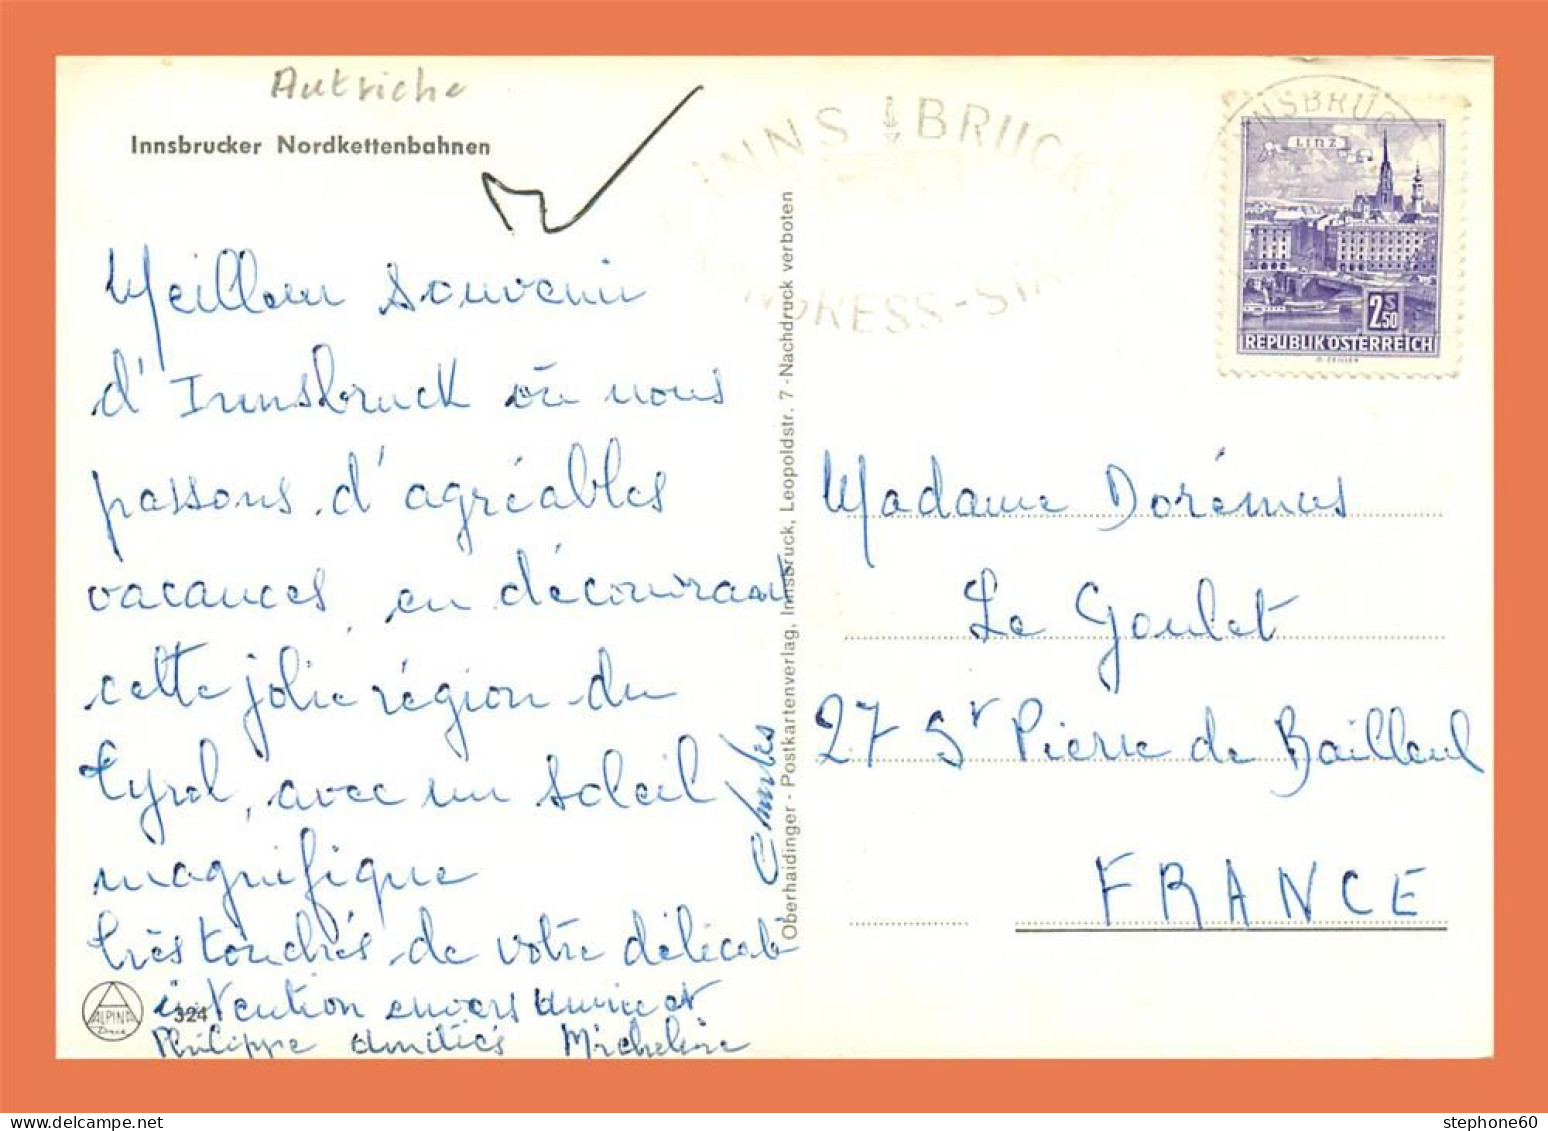 Autriche
Innsbrucker Nordkettenbahnen
Meilleur souvenir
d'Innsbruck où nous
passons d'agréables
vacances, en découvrant
cette jolie région du
Tyrol, avec un soleil
magnifique
très touchés de votre délicate
intention envers
Philippe amitiés Micheline
Charles
ALPINA
324
Oberhaidinger - Postkartenverlag, Innsbruck, Leopoldstr. 7 - Nachdruck verboten
INNSBRUCK
NGRESS-ST
INNSBRUC
LINZ
2S50
REPUBLIK ÖSTERREICH
Madame Dorémus
Le Goulet
27 St Pierre de Bailleul
FRANCE
stephone60